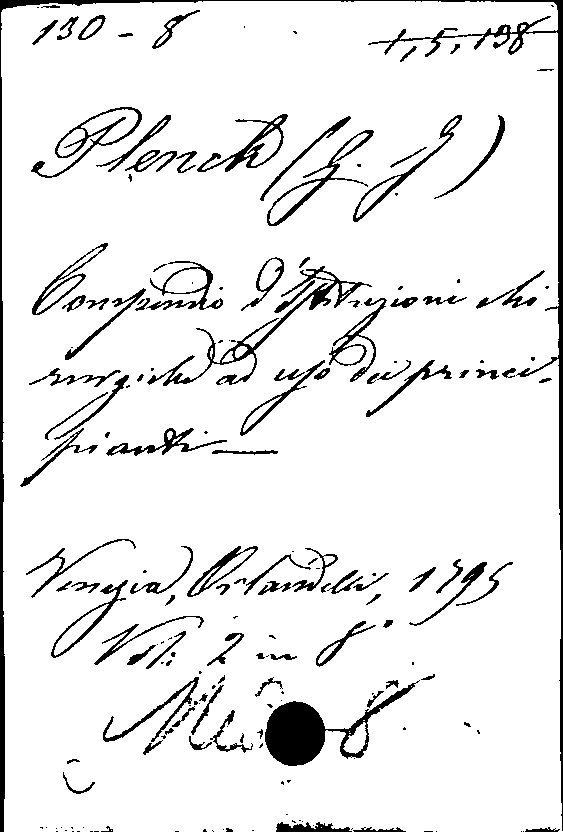 130 - 8
1, 5, 138
Plenck (G. J)
Compendio d'Istituzioni chi-
rurgiche ad uso dei princi-
pianti —
Venezia, Orlandelli, 1795
Vol: 2 in 8°
8